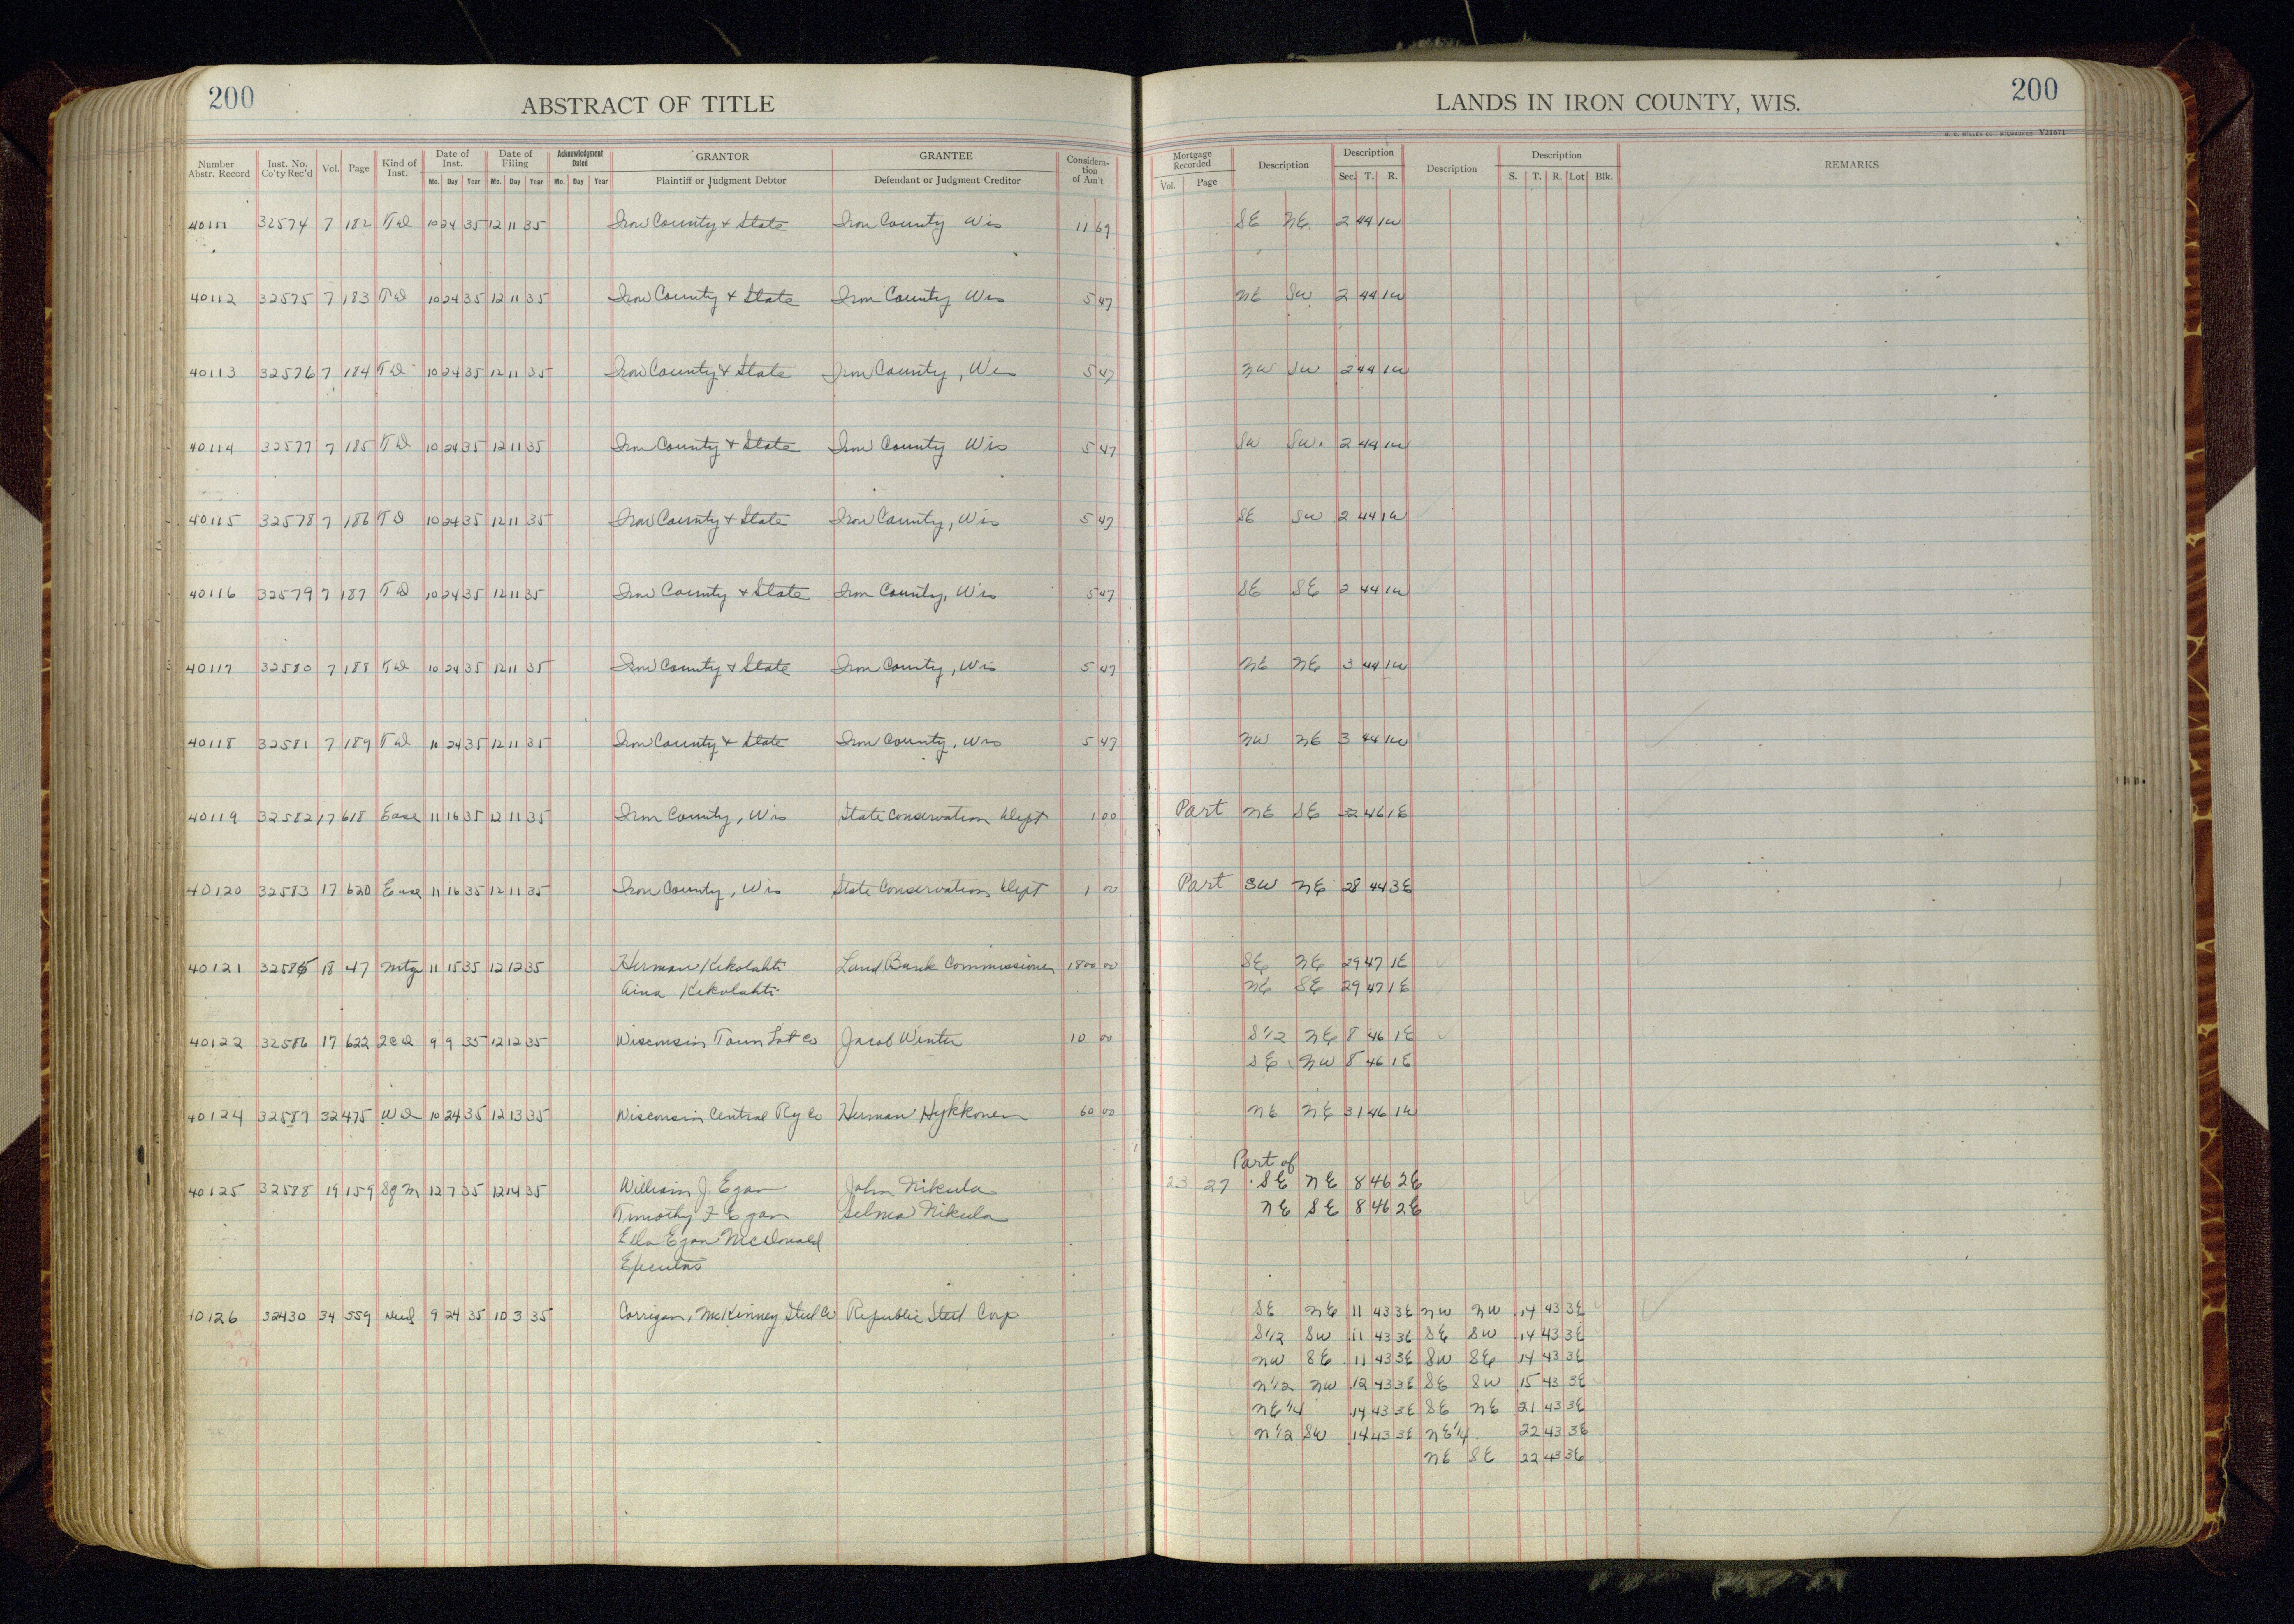 200
ABSTRACT OF TITLE
LANDS IN IRON COUNTY, WIS.
200
H. C. MILLER CO., MILWAUKEE V21671
Number Abstr. Record Inst. No. Co'ty Rec'd Vol. Page Kind of Inst. Date of Inst. Date of Filing Acknowledgment Dated GRANTOR GRANTEE Considera-tion of Am't Mortgage Recorded Description Description Description Description REMARKS
Mo. Day Year Mo. Day Year Mo. Day Year Plaintiff or Judgment Debtor Defendant or Judgment Creditor Vol. Page Sec. T. R. S. T. R. Lot Blk.
40111 32574 7 182 TD 10 24 35 12 11 35 Iron County & State Iron County Wis 11 69 SE NE 2 44 1W
40112 32575 7 183 TD 10 24 35 12 11 35 Iron County & State Iron County Wis 5 47 NE SW 2 44 1W
40113 32576 7 184 TD 10 24 35 12 11 35 Iron County & State Iron County, Wis 5 47 NW SW 2 44 1W
40114 32577 7 185 TD 10 24 35 12 11 35 Iron County & State Iron County Wis 5 47 SW SW 2 44 1W
40115 32578 7 186 TD 10 24 35 12 11 35 Iron County & State Iron County, Wis 5 47 SE SW 2 44 1W
40116 32579 7 187 TD 10 24 35 12 11 35 Iron County & State Iron County, Wis 5 47 SE SE 2 44 1W
40117 32580 7 188 TD 10 24 35 12 11 35 Iron County & State Iron County, Wis 5 47 NE NE 3 44 1W
40118 32581 7 189 TD 10 24 35 12 11 35 Iron County & State Iron County, Wis 5 47 NW NE 3 44 1W
40119 32582 17 618 Ease 11 16 35 12 11 35 Iron County, Wis State Conservation Dept 1 00 Part NE SE 46 1E
40120 32583 17 620 Ease 11 16 35 12 11 35 Iron County, Wis State Conservation Dept 1 00 Part SW NE 28 44 3E
40121 32585 18 47 Mtge 11 15 35 12 12 35 Herman Kekolahti Land Bank Commissioner 1800 00 SE NE 29 47 1E
Aina Kekolahti NE SE 29 47 1E
40122 32586 17 622 QCD 9 9 35 12 12 35 Wisconsin Town Lot Co Jacob Winter 10 00 S1/2 NE 8 46 1E
SE NW 8 46 1E
40124 32587 32 475 WD 10 24 35 12 13 35 Wisconsin Central Ry Co Herman Hykkonen 60 00 NE NE 31 46 1W
Part of
40125 32588 19 159 Sgm 12 7 35 12 14 35 William J. Egan John Nikula 23 27 SE NE 8 46 2E
Timothy F Egan Selma Nikula NE SE 8 46 2E
Ella Egan McDonald
Executors
40126 32430 34 559 Deed 9 24 35 10 3 35 Corrigan, McKinney Steel Co Republic Steel Corp SE NE 11 43 3E NW NW 14 43 3E
S1/2 SW 11 43 3E SE SW 14 43 3E
NW SE 11 43 3E SW SE 14 43 3E
N1/2 NW 12 43 3E SE SW 15 43 3E
NE1/4 14 43 3E SE NE 21 43 3E
N1/2 SW 14 43 3E NE1/4 22 43 3E
NE SE 22 43 3E